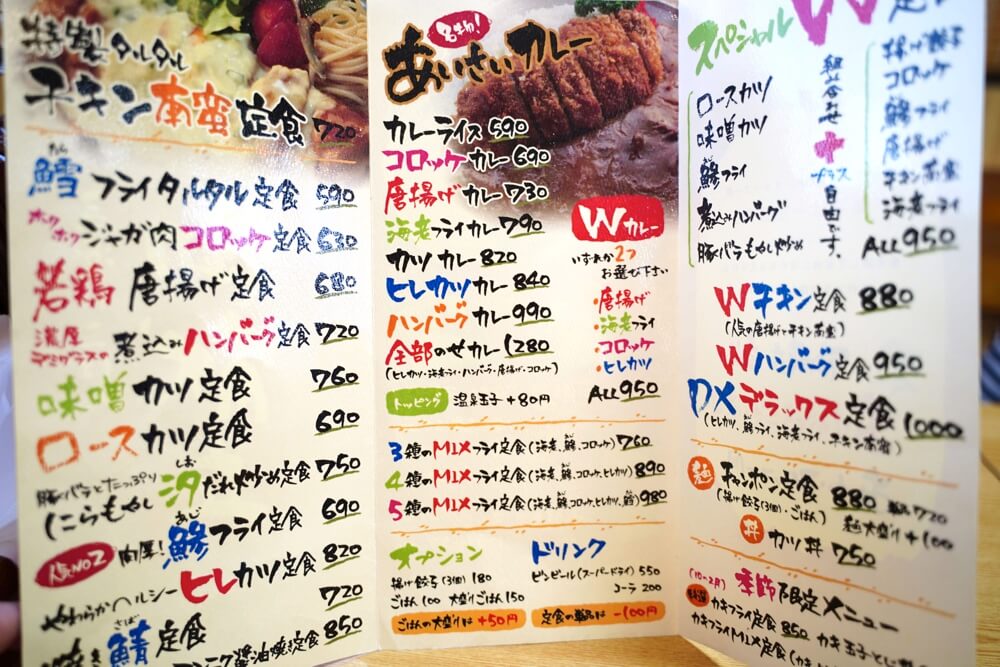 特製タルタル
チキン南蛮定食 720
たら
鱈フライタルタル定食 590
ホクホクジャガ肉コロッケ定食 630
若鶏 唐揚げ定食 680
濃厚デミグラスの煮込みハンバーグ定食 720
味噌カツ定食 760
ロースカツ定食 690
豚バラとたっぷり
にらもやし汐だれ炒め定食 750
しお
あじ
肉厚!鯵フライ定食 690
人気NO2
やわらかヘルシーヒレカツ定食 820
さば
焼き鯖定食 720
醤油焼き定食 850
名物!
あいさいカレー
カレーライス 590
コロッケカレー 690
唐揚げカレー 730
海老フライカレー 790
カツカレー 820
ヒレカツカレー 840
ハンバーグカレー 990
全部のせカレー 1280
(ヒレカツ・海老フライ・ハンバーグ・唐揚げ・コロッケ)
トッピング 温泉玉子+80円
Wカレー
いずれか2つ
お選び下さい
・唐揚げ
・海老フライ
・コロッケ
・ヒレカツ
ALL950
3種のMIXフライ定食(海老、鯵、コロッケ) 760
4種のMIXフライ定食(海老、鯵、コロッケ、ヒレカツ) 890
5種のMIXフライ定食(海老、鯵、コロッケ、ヒレカツ、鱈) 980
オプション
揚げ餃子(3個) 180
ごはん 100 大盛りごはん 150
ごはんの大盛りは +50円
ドリンク
ビンビール(スーパードライ) 550
コーラ 200
定食の単品は -100円
スペシャルW定
ロースカツ
味噌カツ
鯵フライ
煮込みハンバーグ
豚バラもやし炒め
組み合わせ
+
プラス
自由です。
揚げ餃子
コロッケ
鯵フライ
唐揚げ
チキン南蛮
海老フライ
ALL950
Wチキン定食 880
(人気の唐揚げとチキン南蛮)
Wハンバーグ定食 950
DXデラックス定食 1000
(ヒレカツ、鯵フライ、海老フライ、チキン南蛮)
麺 チャンポン定食 880 単品720
(揚げ餃子(3個)・ごはん) 麺大盛り+100
丼 カツ丼 750
(10〜2月) 季節限定メニュー
カキフライ定食 850 カキ玉子とじ
カキフライMIX定食